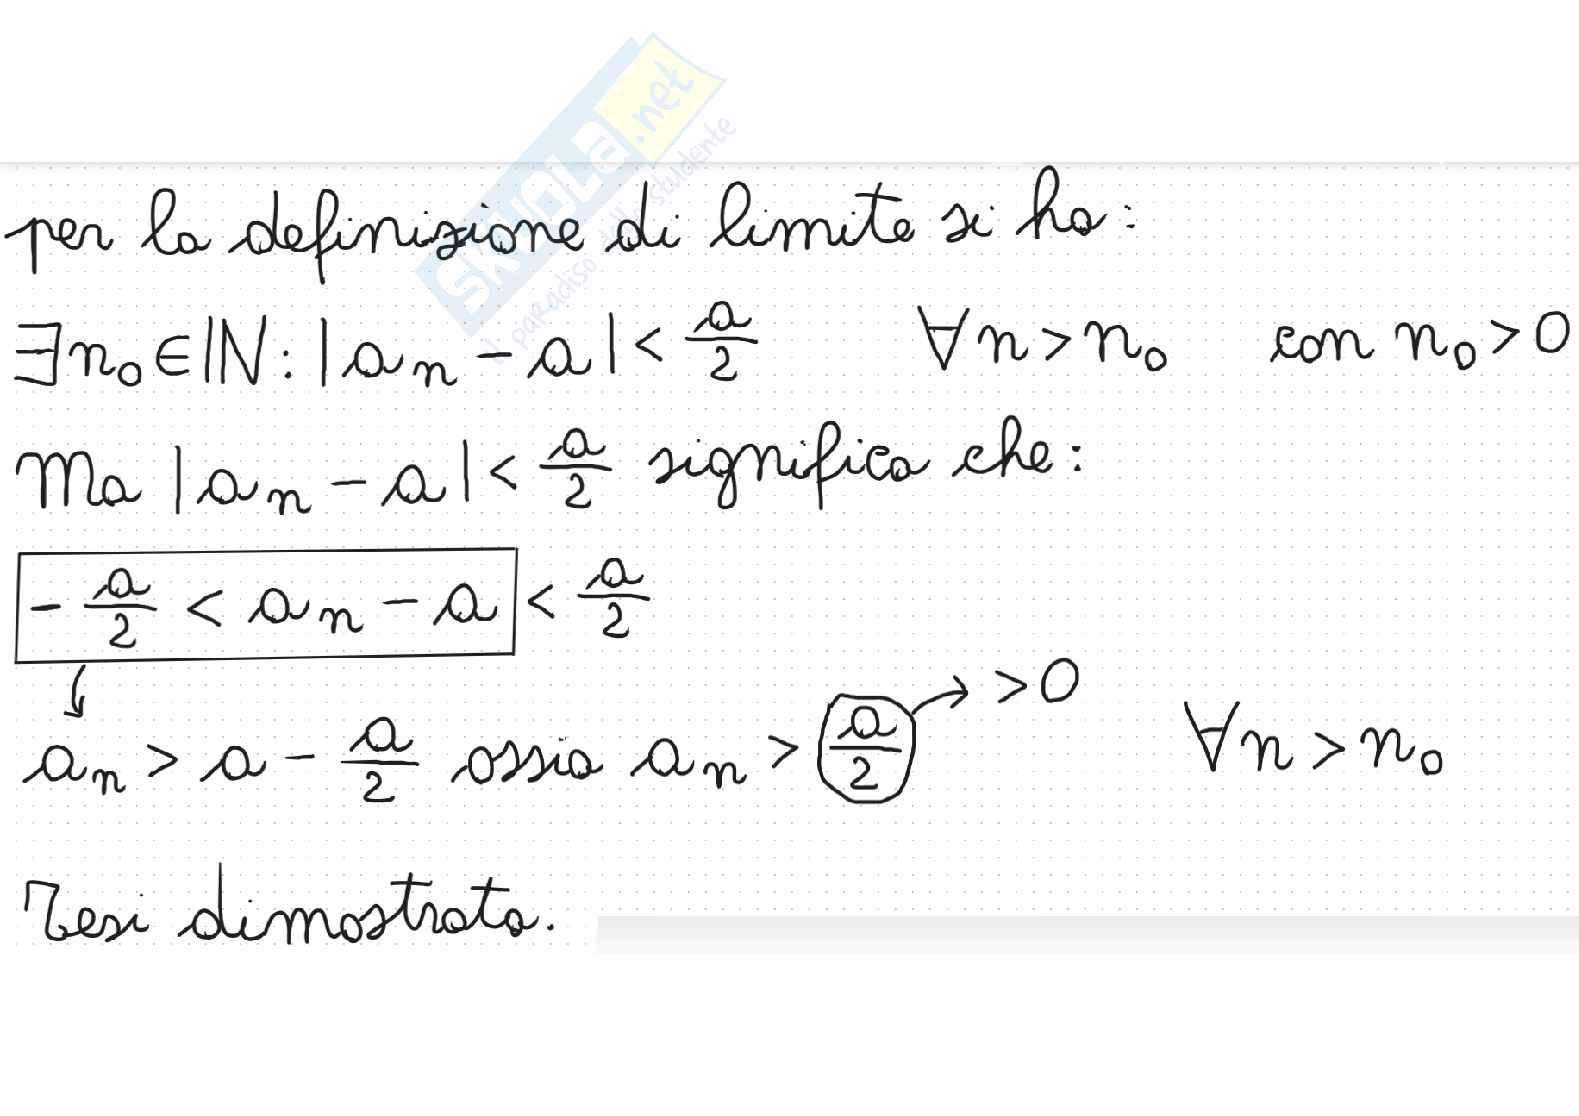 SKUOLA.net
il paradiso dello studente
per la definizione di limite si ha:
∃n₀∈ℕ: |aₙ - a| < a/2 ∀n > n₀ con n₀ > 0
Ma |aₙ - a| < a/2 significa che:
- a/2 < aₙ - a < a/2
↓
aₙ > a - a/2 ossia aₙ > a/2 → > 0 ∀n > n₀
Tesi dimostrata.